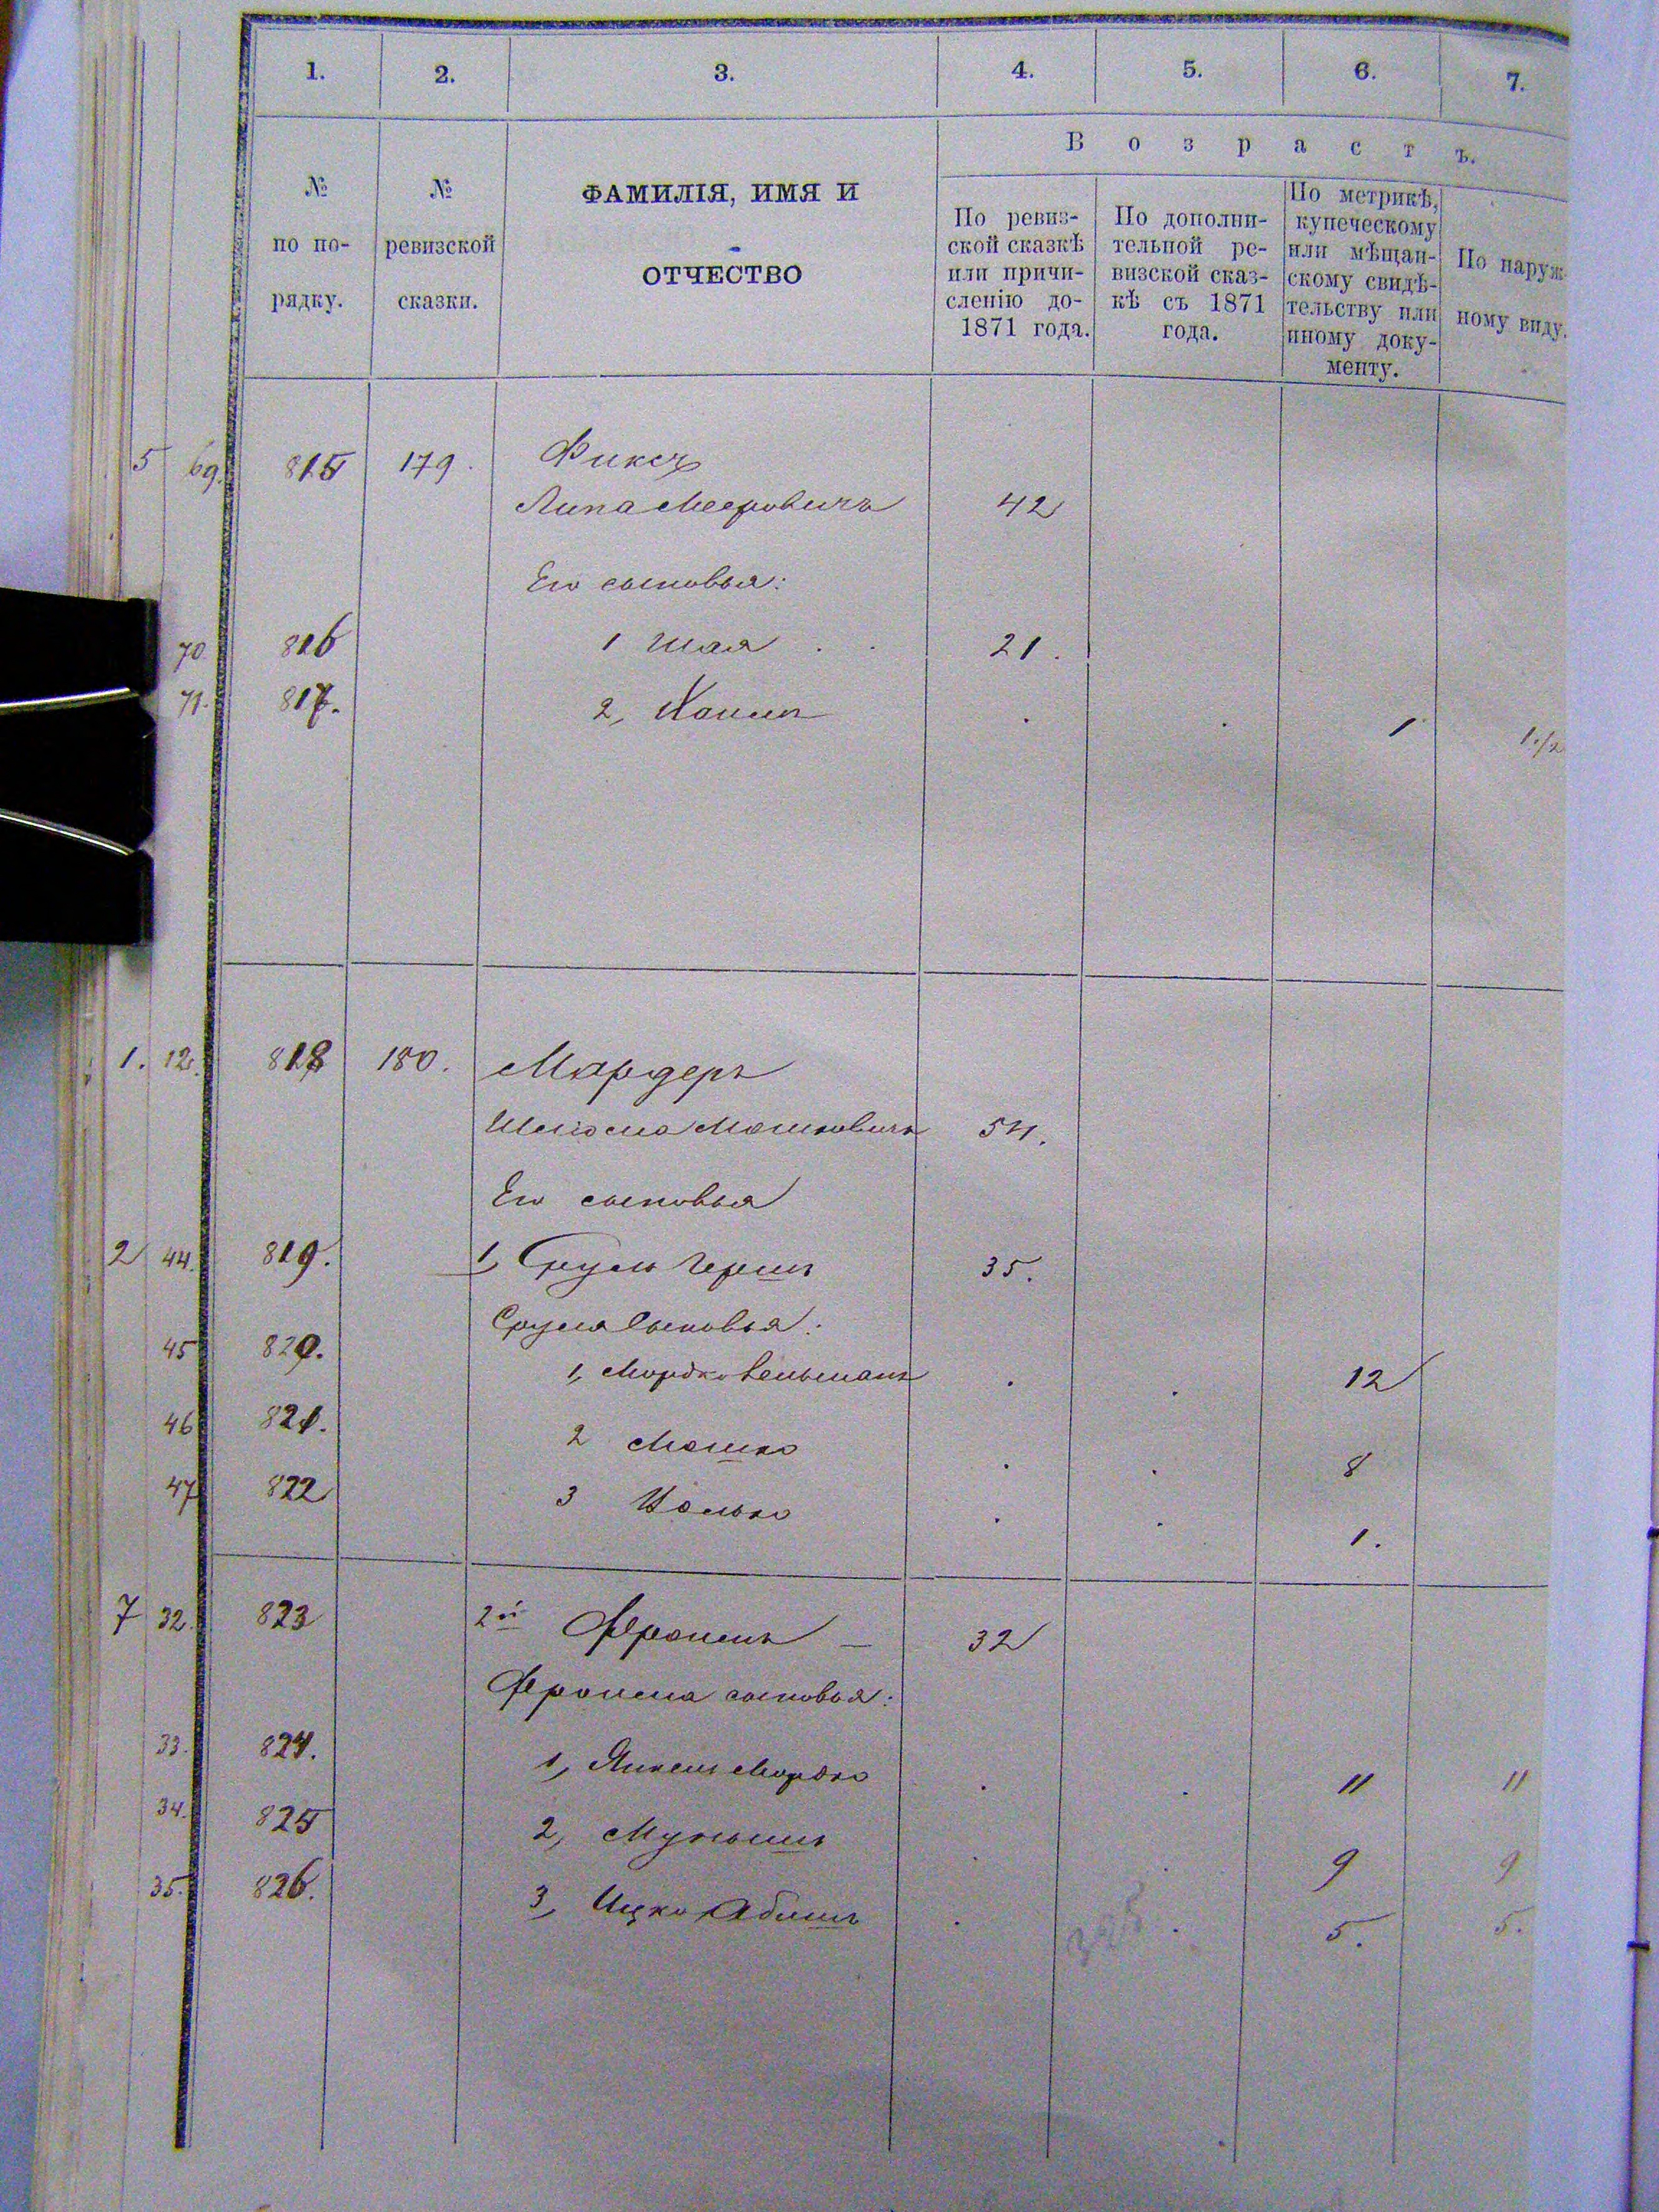 1. 2. 3. 4. 5. 6. 7.
Возрастъ.
№ по порядку.
№ ревизской сказки.
ФАМИЛІЯ, ИМЯ И
ОТЧЕСТВО
По ревиз-
ской сказкѣ
или причи-
сленію до-
1871 года.
По дополни-
тельной ре-
визской сказ-
кѣ съ 1871
года.
По метрикѣ,
купеческому
или мѣщан-
скому свидѣ-
тельству или
иному доку-
менту.
По наруж-
ному виду.
5 69. 815 179. Фиксъ
Липа Мееровичъ 42
Его сыновья:
70 816 1 Шая 21.
71. 817. 2, Хаимъ . . 1 1 1/2
1. 12. 818 180. Мардеръ
Шлиома Мошковичъ 54.
Его сыновья
2 44. 819. 1, Сруль Гершъ 35.
Сруля сыновья:
45 820. 1, Мордко Вельманъ . . 12
46 821. 2 Мошко . . 8
47 822 3 . . 1.
7 32. 823 2й Фроимъ — 32
Фроима сыновья:
33. 824. 1, Янкель Мордко . . 11 11
34. 825 2, . . 9 9
35. 826. 3, Ицко Абишъ . . 5. 5.